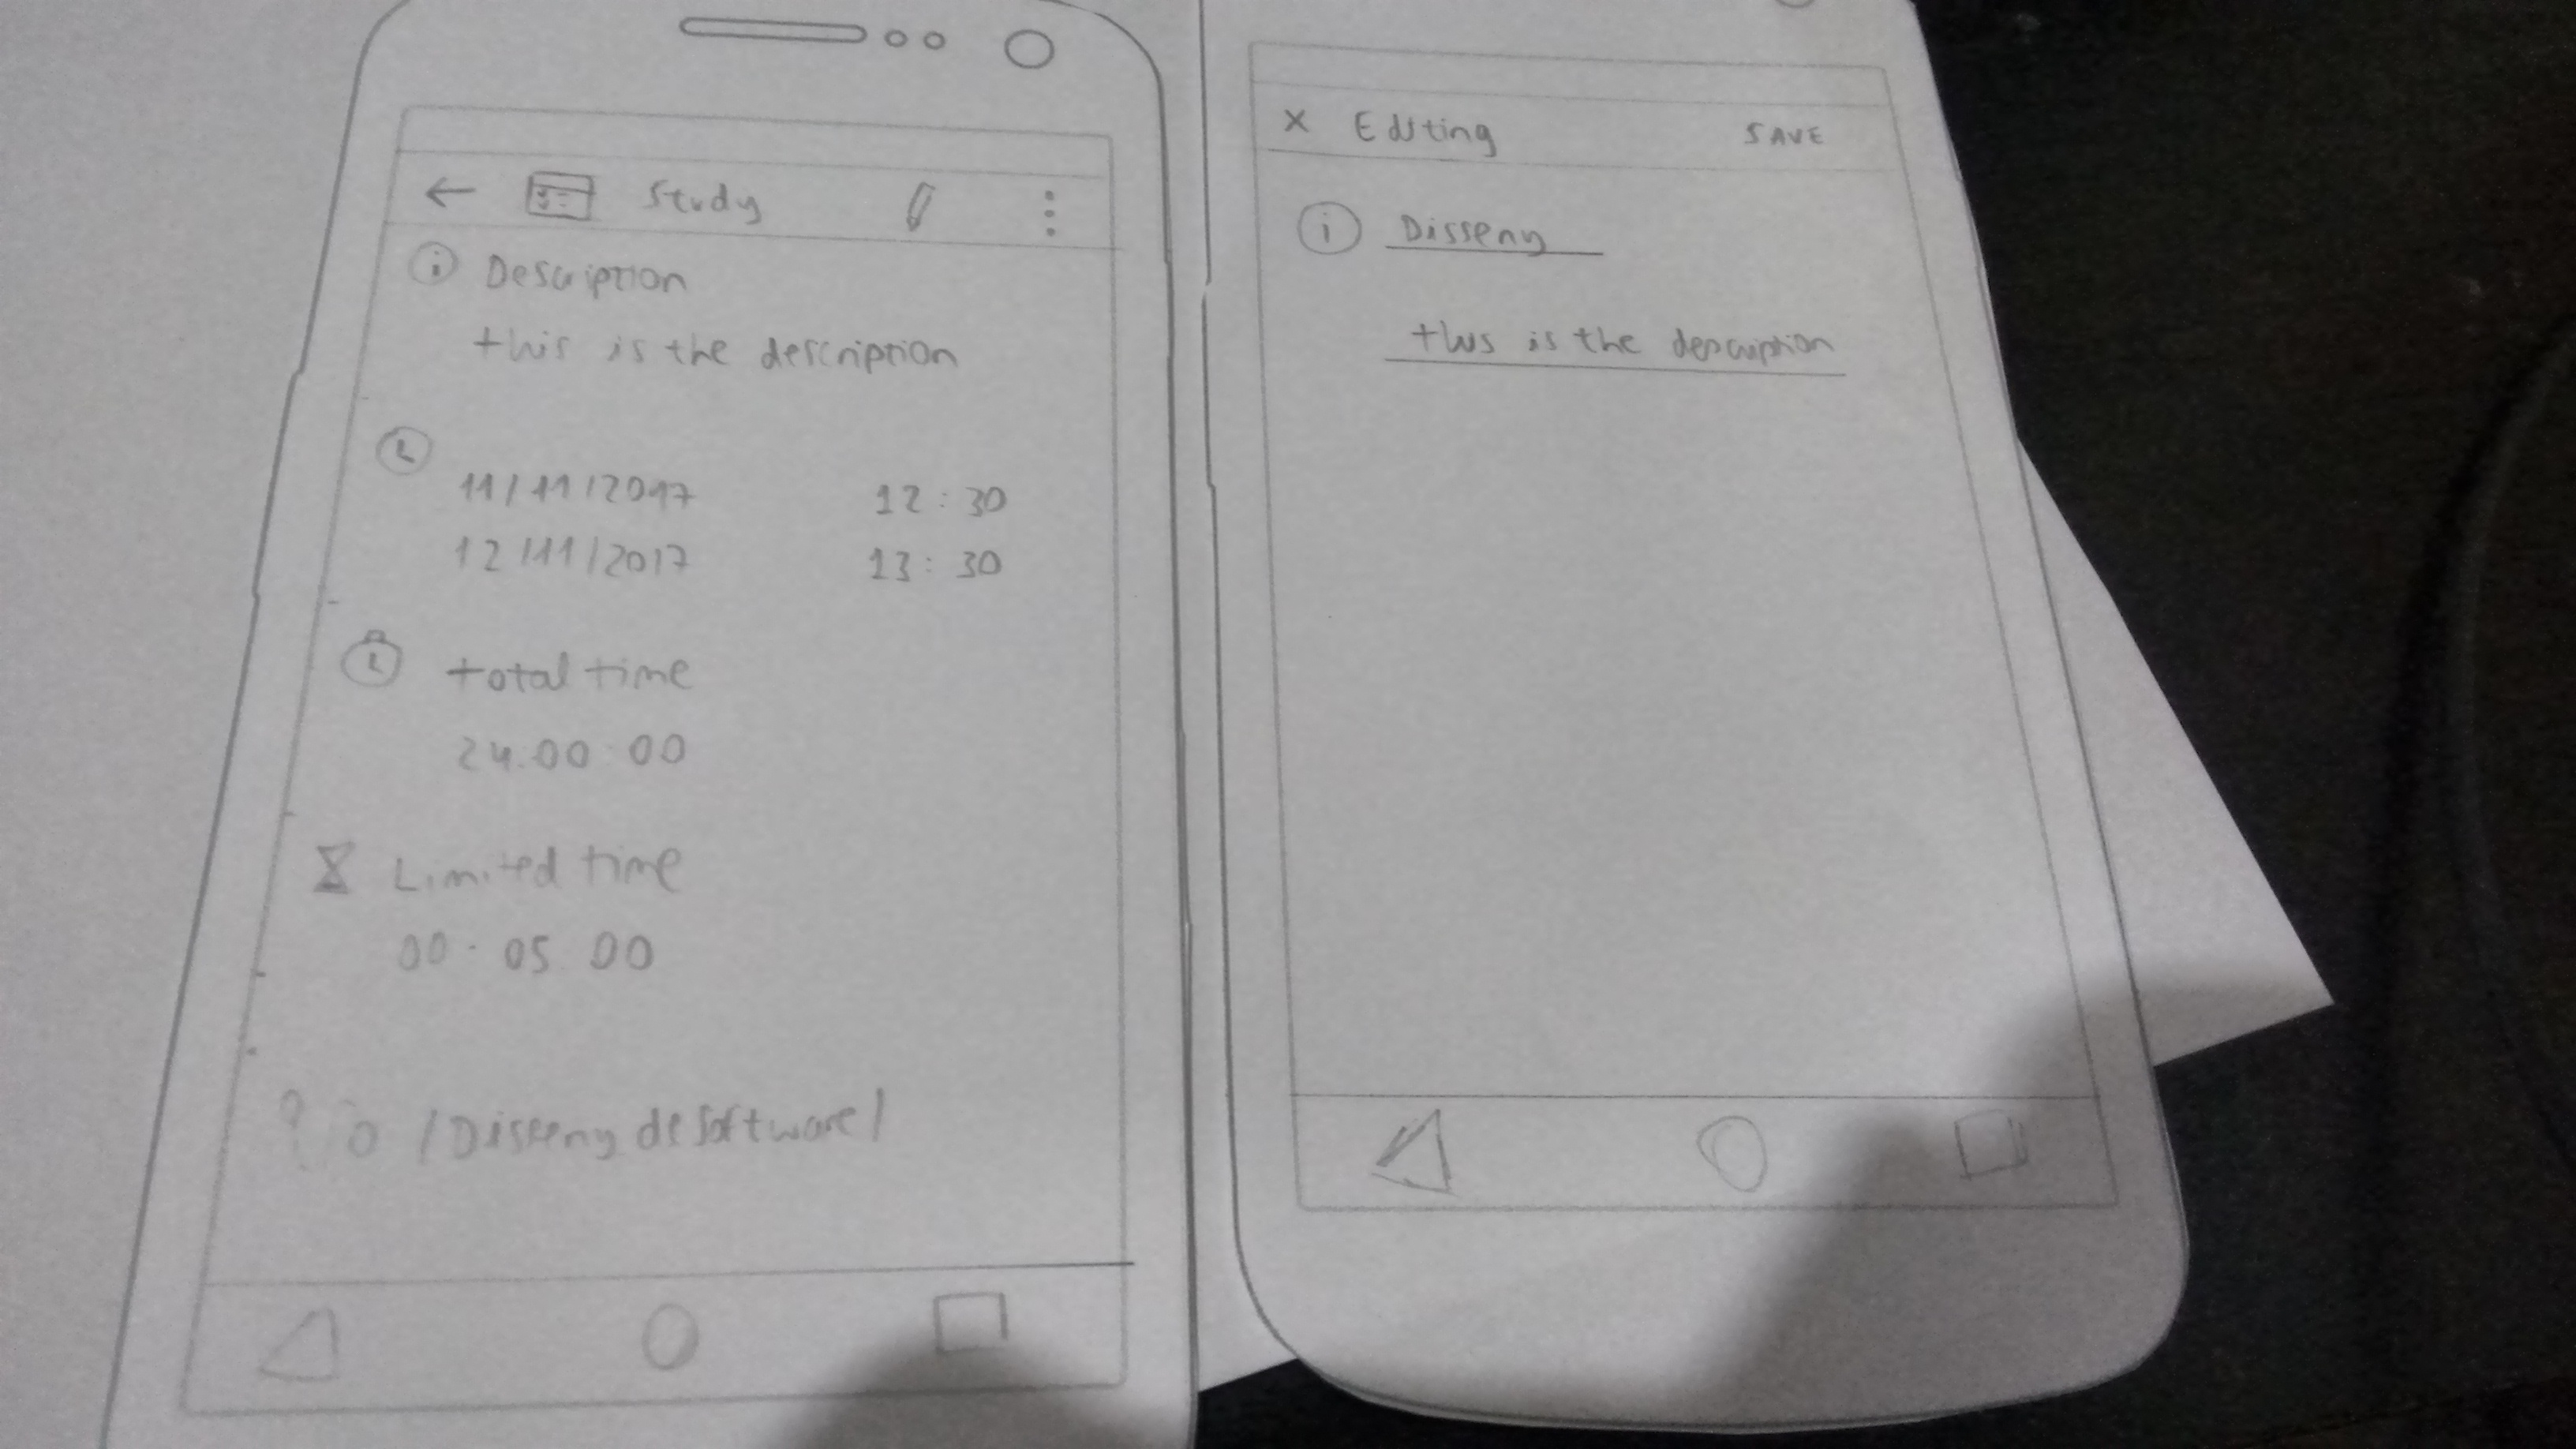 Study
Description
this is the description
11/11/2017 12:30
12/11/2017 13:30
total time
24:00:00
Limited time
00:05:00
/Disseny de software/
X Editing SAVE
i Disseny
this is the description